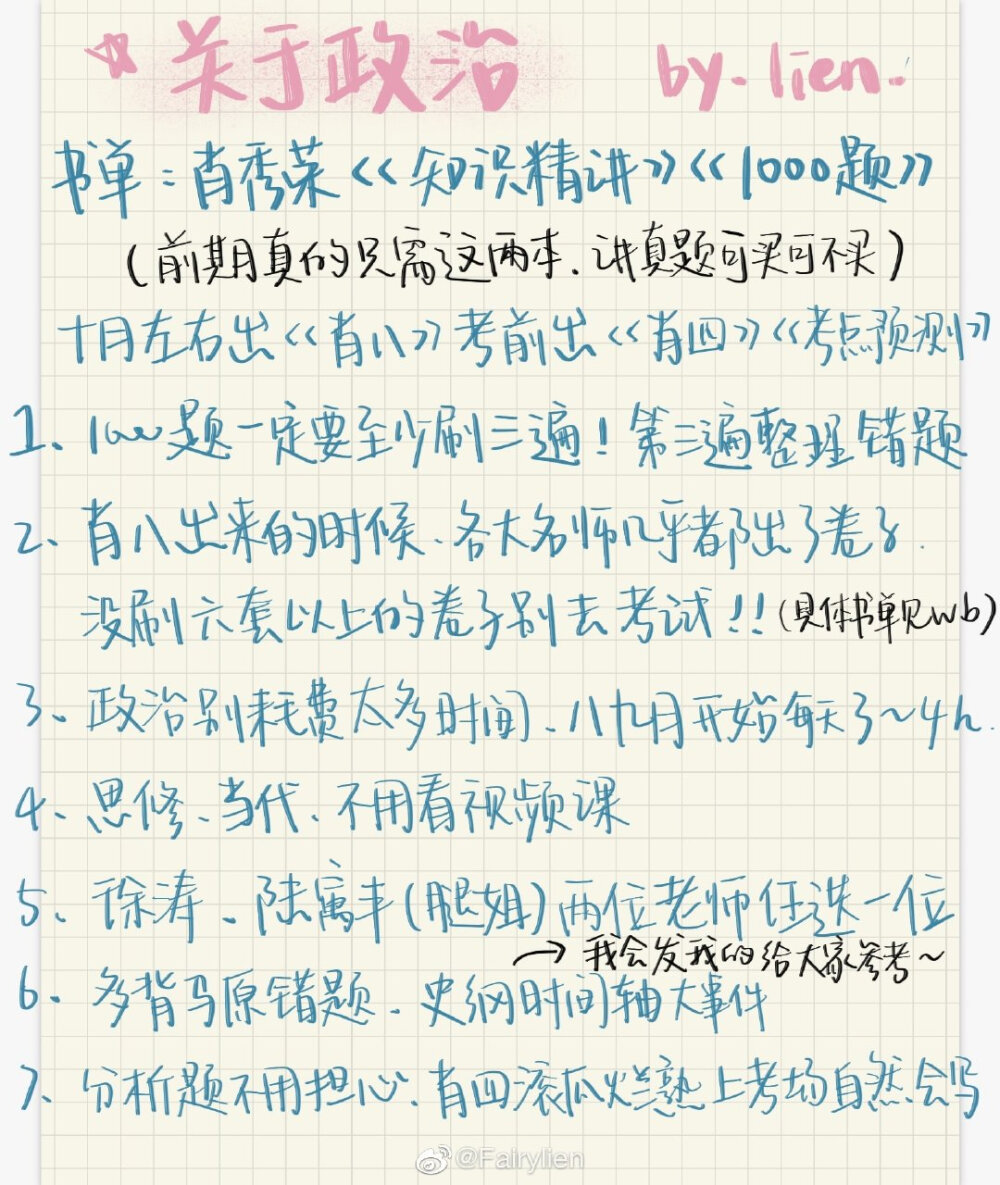 ☆关于政治 by. lien.
书单:肖秀荣《知识精讲》《1000题》
(前期真的只需这两本、讲真题可买可不买)
十月左右出《肖八》考前出《肖四》《考点预测》
1、1000题一定要至少刷三遍!第三遍整理错题
2、肖八出来的时候、各大名师几乎都出了卷子.
没刷六套以上的卷子别去考试!!(具体书单见wb)
3、政治别耗费太多时间、八九月开始每天3~4h.
4、思修、当代、不用看视频课
5、徐涛、陆寓丰(腿姐)两位老师任选一位
→我会发我的给大家参考~
6、多背马原错题、史纲时间轴大事件
7、分析题不用担心、肖四滚瓜烂熟上考场自然会写
@Fairylien